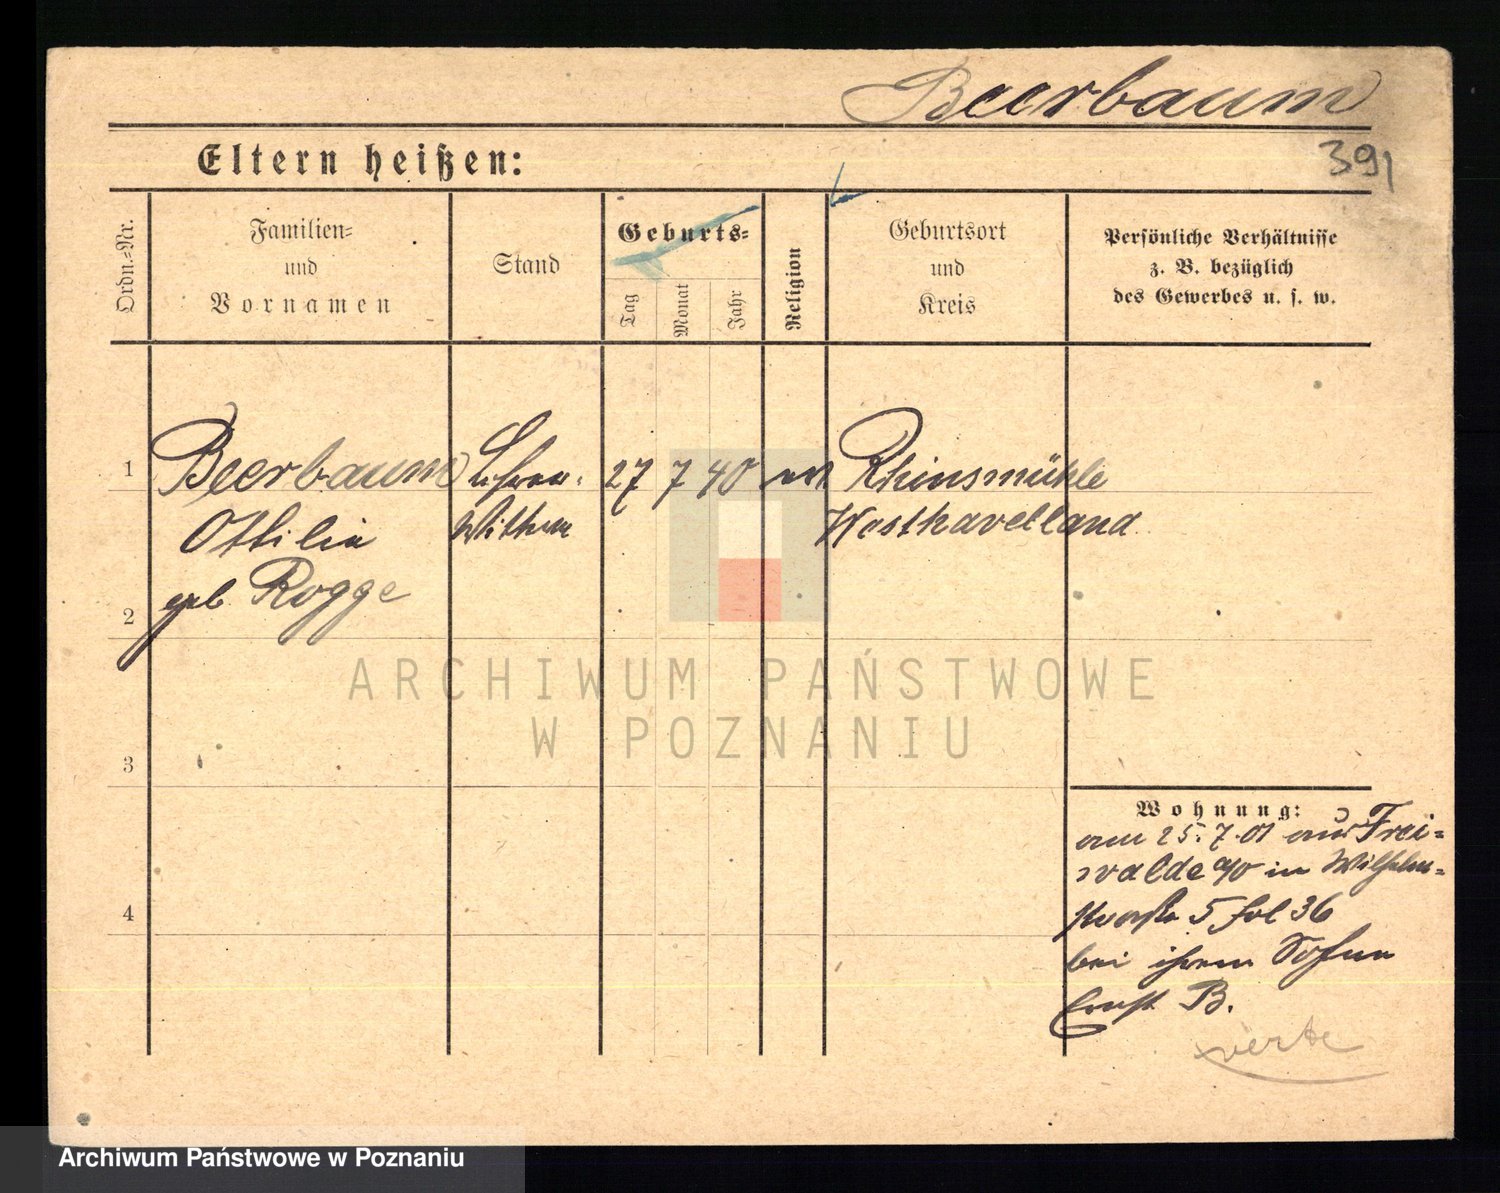 Beerbaum
Eltern heißen:
391
Ordn.-Nr.
Familien-
und
Vornamen
Stand
Geburts-
Tag
Monat
Jahr
Religion
Geburtsort
und
Kreis
Persönliche Verhältnisse
z. B. bezüglich
des Gewerbes u. s. w.
1
Beerbaum Lehrer- 27 7 40 ev Rhinsmühle
Ottilie Wittwe Westhavelland
geb. Rogge
2
3
4
Wohnung:
am 25. 7. 01 aus Frei-
walde a/O in Wilhelm-
straße 5 fol 36
bei ihrem Sohne
Ernst B.
verte
ARCHIWUM PAŃSTWOWE
W POZNANIU
Archiwum Państwowe w Poznaniu